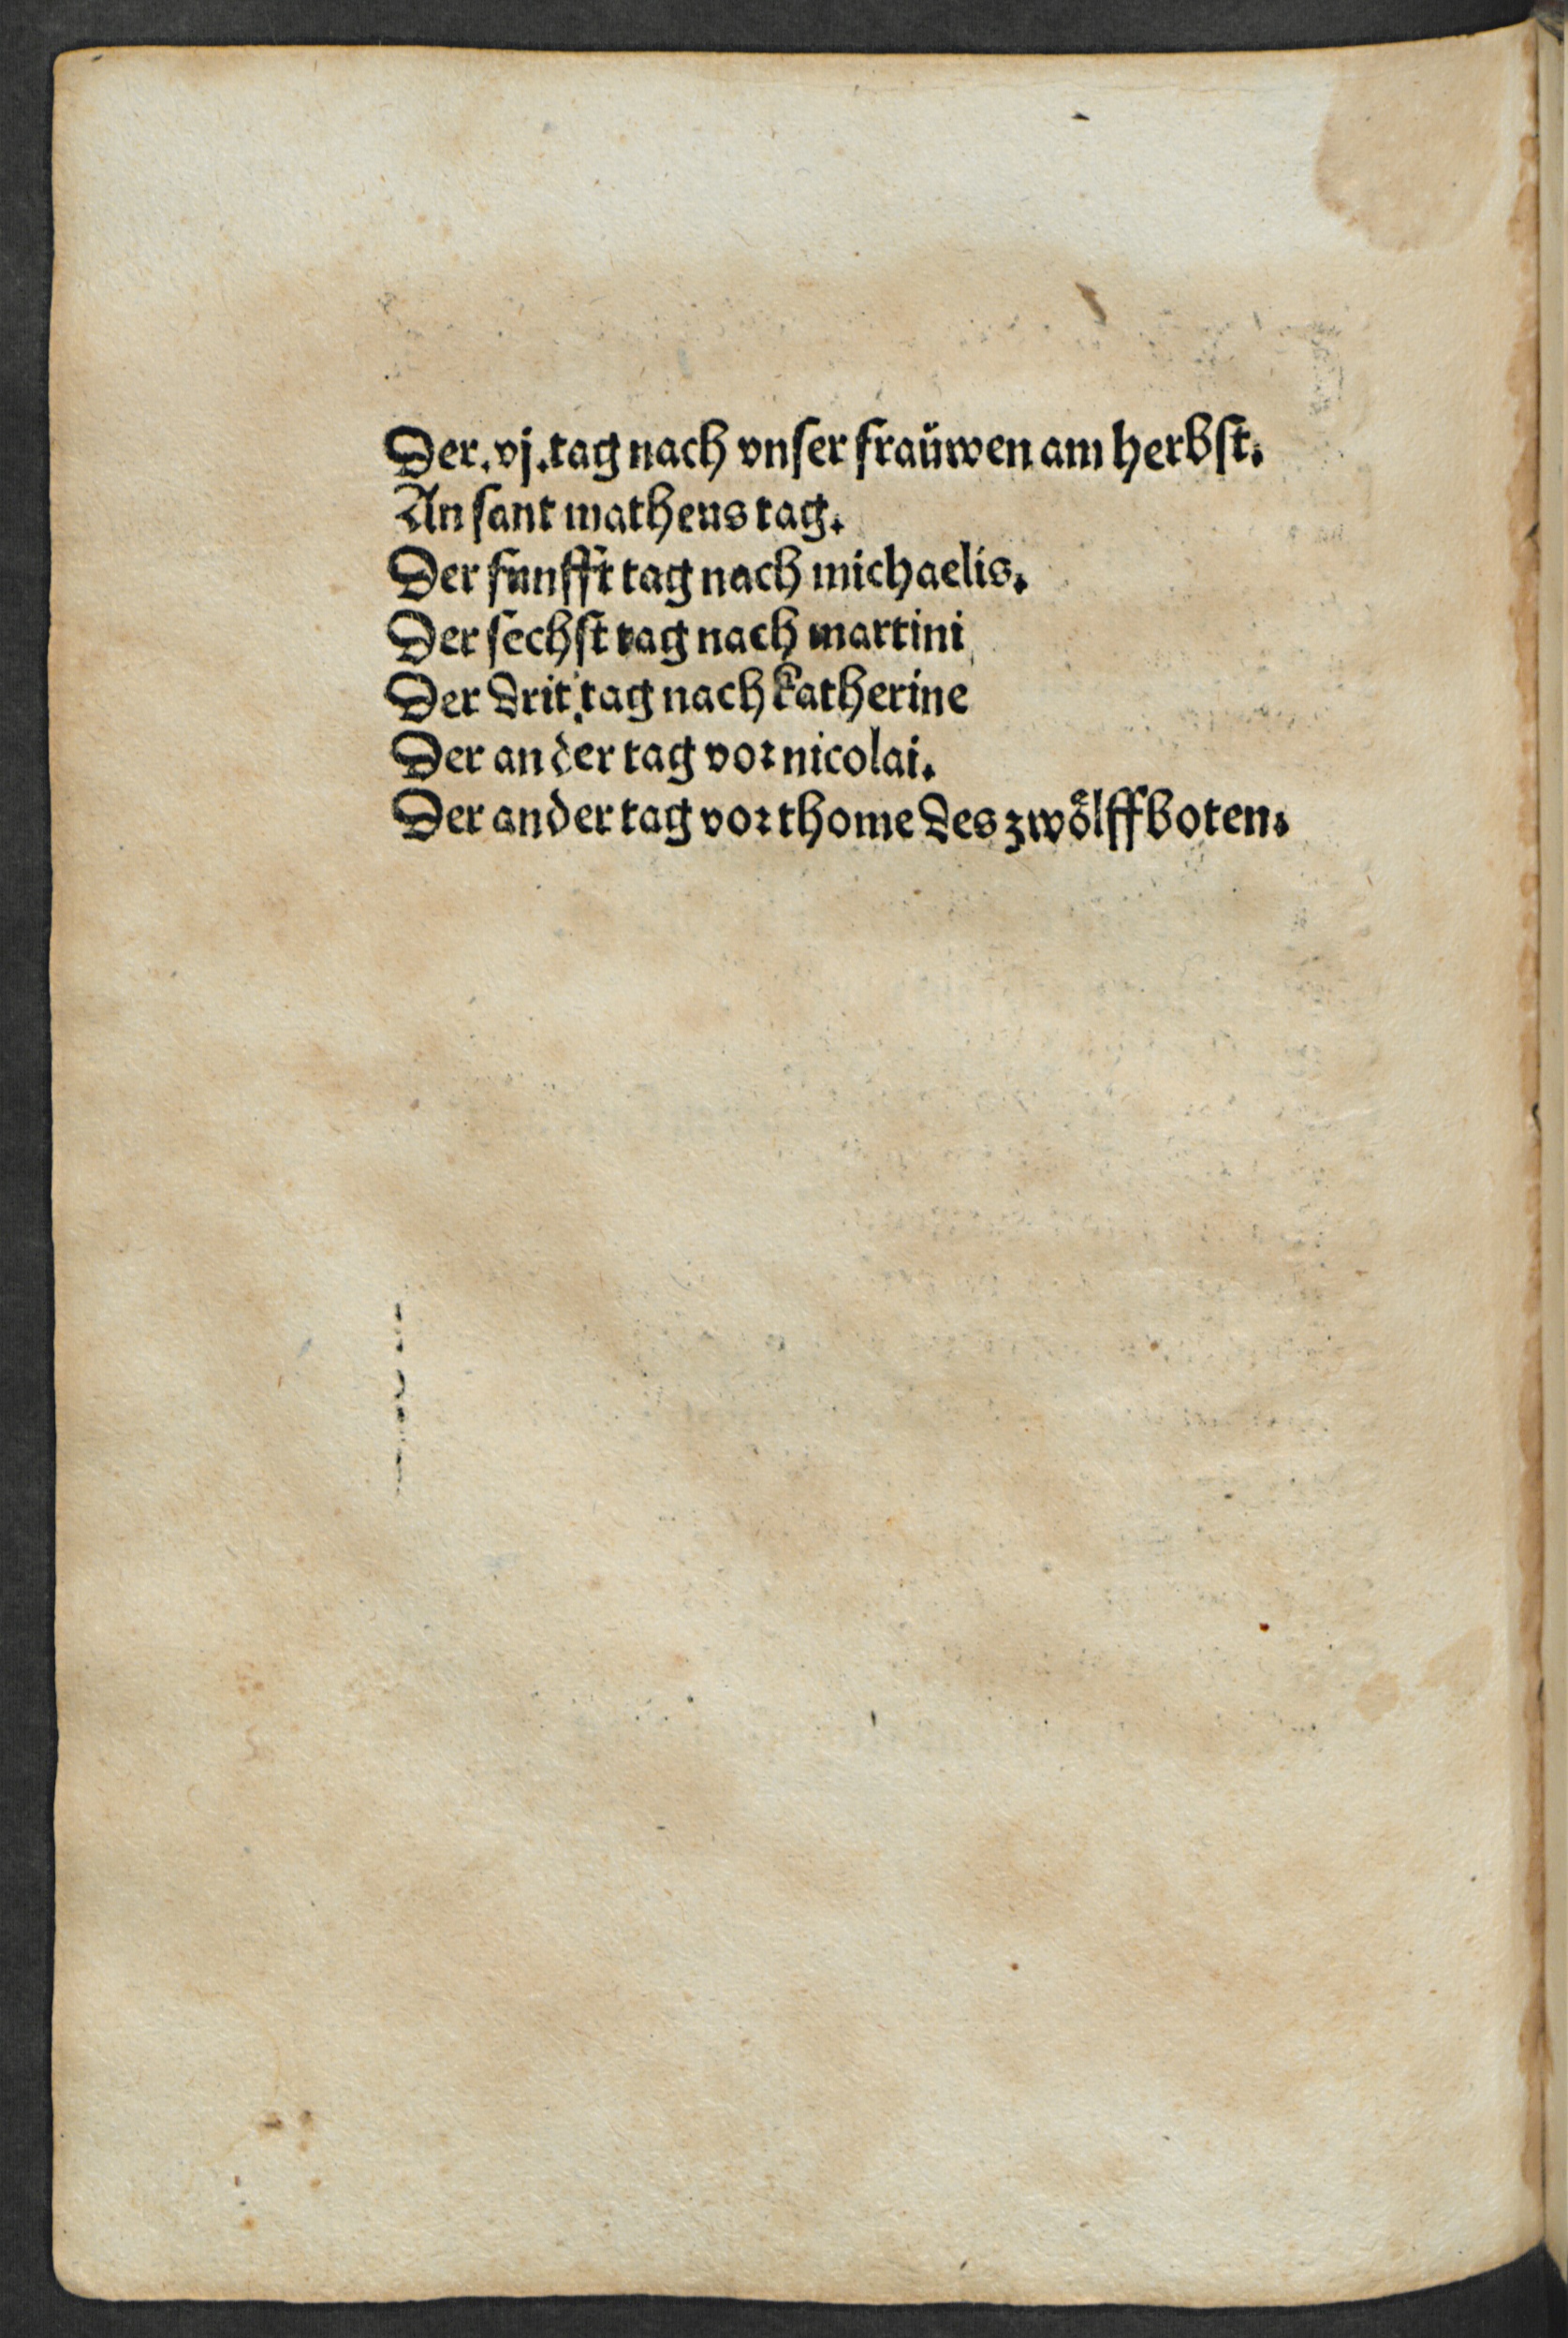 Der .vj. tag nach vnser fraüwen am herbst.
An sant matheus tag.
Der funfft tag nach michaelis.
Der sechst tag nach martini
Der drit tag nach katherine
Der ander tag vor nicolai.
Der ander tag vor thome des zwoͤlffboten.